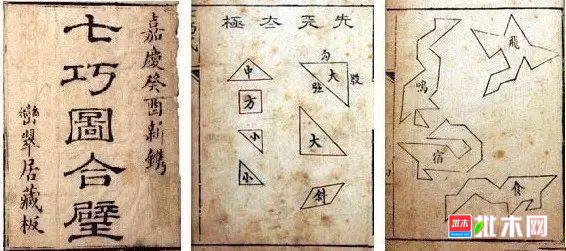 嘉慶癸酉新鐫
七巧圖合璧
巒翠居藏板
先天太極
勾
股
弦
大
大
斜
中
方
小
小
飛
鳴
宿
食
批木网